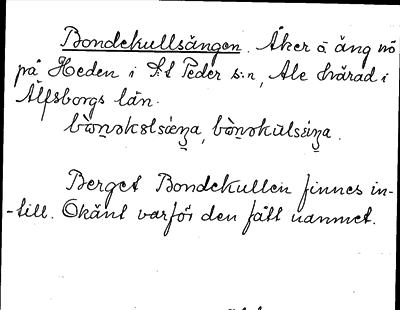 Bondekullsängen. Åker å äng nö
på Heden i S:t Peder s:n, Ale härad i
Älfsborgs län.
Berget Bondekullen finnes in-
-till. Okänt varför den fått namnet.